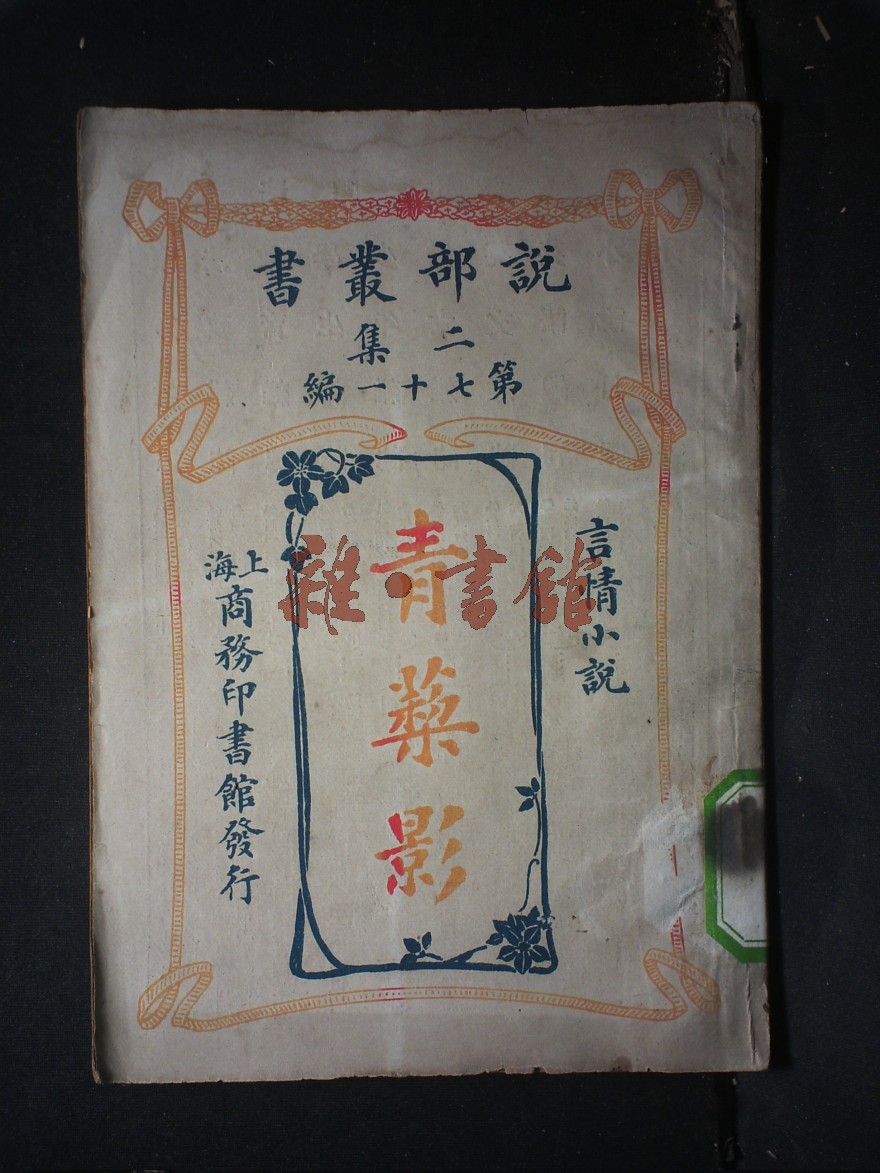 說部叢書
二集
第七十一編
言情小說
青藜影
上海商務印書館發行
雜·書館